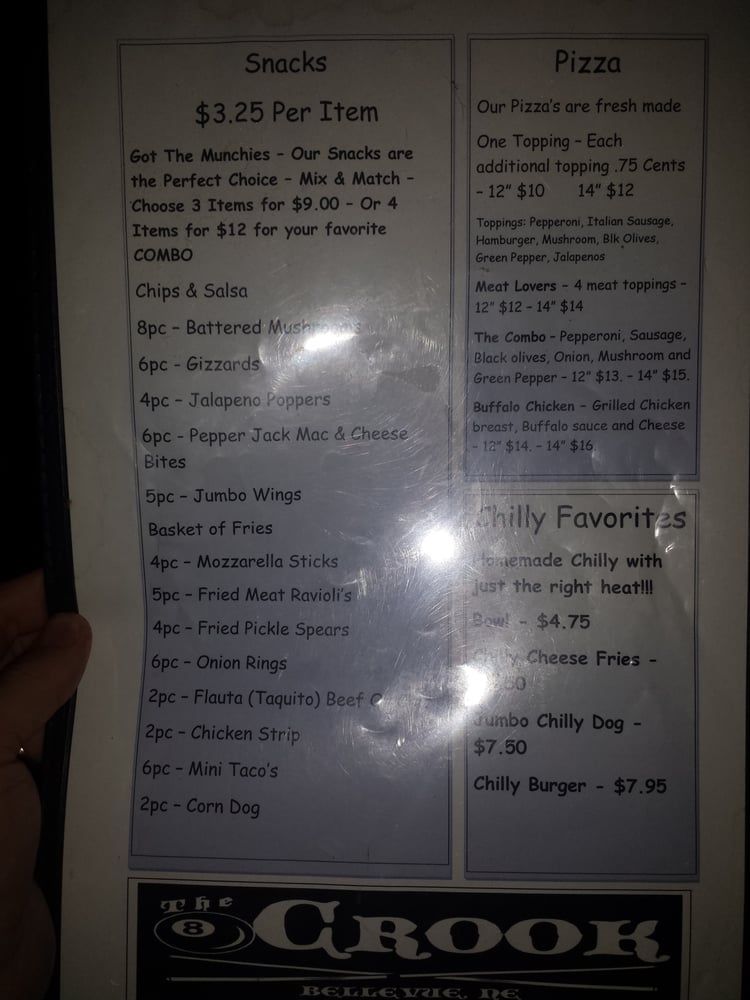 Snacks
$3.25 Per Item
Got The Munchies - Our Snacks are
the Perfect Choice - Mix & Match -
Choose 3 Items for $9.00 - Or 4
Items for $12 for your favorite
COMBO
Chips & Salsa
8pc - Battered Mushrooms
6pc - Gizzards
4pc - Jalapeno Poppers
6pc - Pepper Jack Mac & Cheese
Bites
5pc - Jumbo Wings
Basket of Fries
4pc - Mozzarella Sticks
5pc - Fried Meat Ravioli's
4pc - Fried Pickle Spears
6pc - Onion Rings
2pc - Flauta (Taquito) Beef
2pc - Chicken Strip
6pc - Mini Taco's
2pc - Corn Dog
Pizza
Our Pizza's are fresh made
One Topping - Each
additional topping .75 Cents
- 12" $10 14" $12
Toppings: Pepperoni, Italian Sausage,
Hamburger, Mushroom, Blk Olives,
Green Pepper, Jalapenos
Meat Lovers - 4 meat toppings -
12" $12 - 14" $14
The Combo - Pepperoni, Sausage,
Black olives, Onion, Mushroom and
Green Pepper - 12" $13. - 14" $15.
Buffalo Chicken - Grilled Chicken
breast, Buffalo sauce and Cheese
- 12" $14. - 14" $16.
Chilly Favorites
Homemade Chilly with
just the right heat!!!
Bowl - $4.75
Chilly Cheese Fries -
Jumbo Chilly Dog -
$7.50
Chilly Burger - $7.95
The
8
CROOK
BELLEVUE, NE